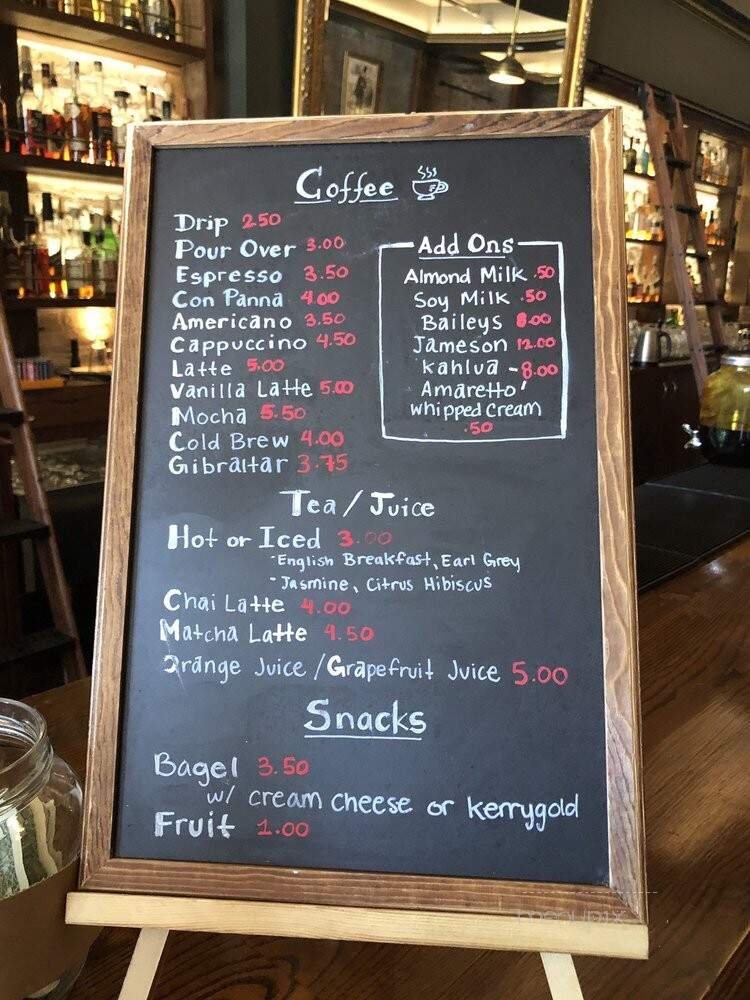 Coffee
Drip 2.50
Pour Over 3.00
Espresso 3.50
Con Panna 4.00
Americano 3.50
Cappuccino 4.50
Latte 5.00
Vanilla Latte 5.00
Mocha 5.50
Cold Brew 4.00
Gibraltar 3.75
Add Ons
Almond Milk .50
Soy Milk .50
Baileys 8.00
Jameson 12.00
Kahlua - 8.00
Amaretto
whipped cream
.50
Tea/Juice
Hot or Iced 3.00
- English Breakfast, Earl Grey
- Jasmine, Citrus Hibiscus
Chai Latte 4.00
Matcha Latte 4.50
Orange Juice / Grapefruit Juice 5.00
Snacks
Bagel 3.50
w/ cream cheese or kerrygold
Fruit 1.00
menupix